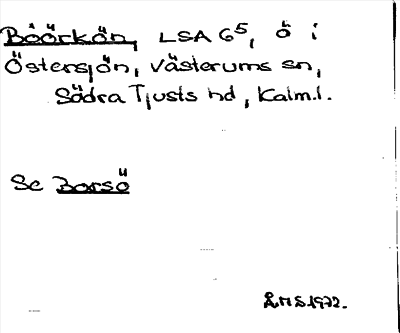 Böörkön, LSA 6⁵, ö i
Östersjön, Västerums sn,
Södra Tjusts hd, Kalm.l.
Se Borsö
ÅMS.1972.